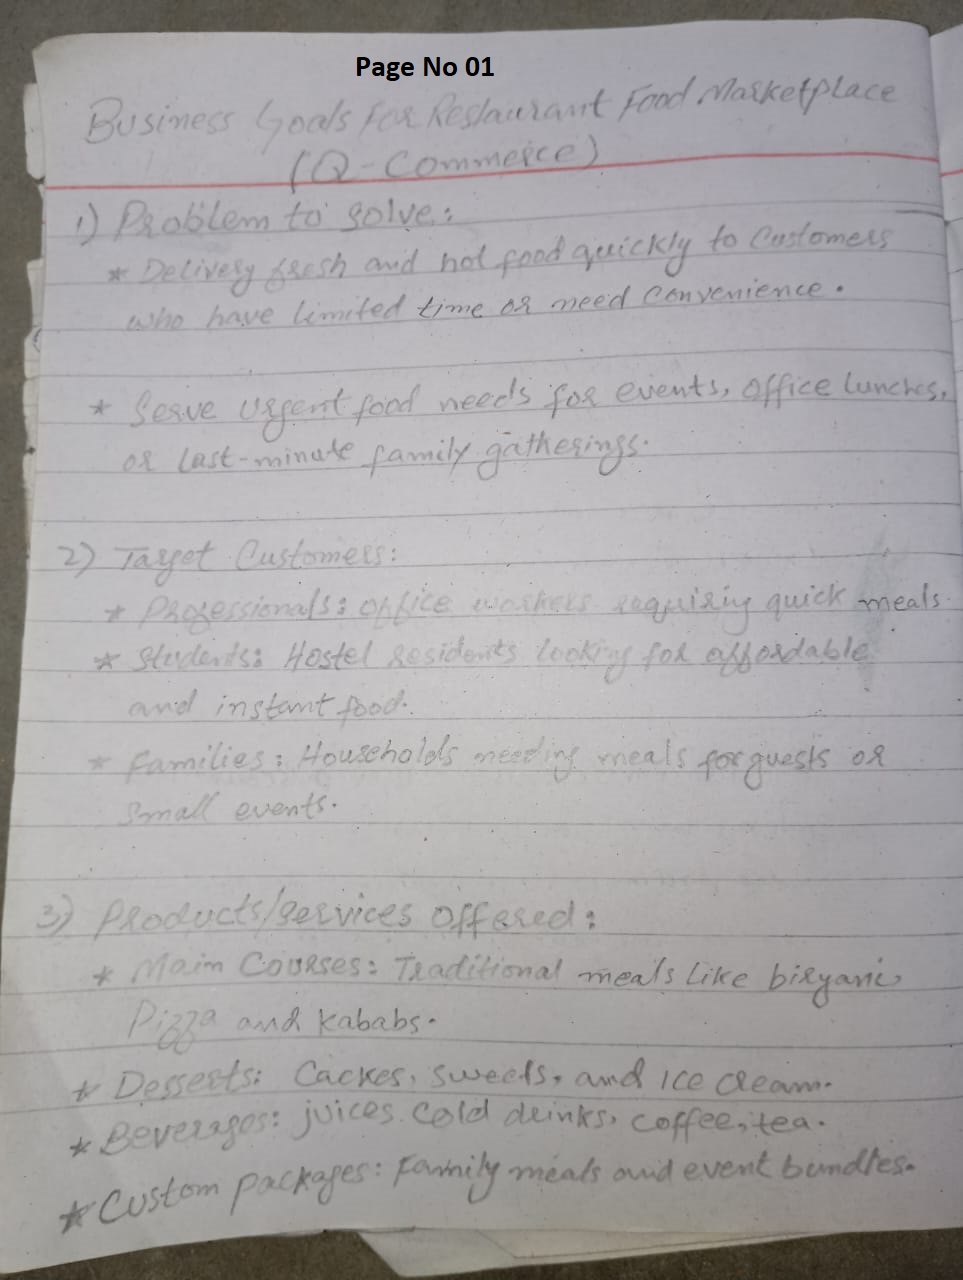 Page No 01
Business Goals For Restaurant Food Marketplace
(Q-Commerce)
1) Problem to solve:
* Delivery fresh and hot food quickly to Customers
who have limited time or need convenience.
* Serve urgent food needs for events, office lunches,
or last-minute family gatherings.
2) Target Customers:
* Professionals: office workers requiring quick meals.
* Students: Hostel residents looking for affordable
and instant food.
* Families: Households needing meals for guests or
small events.
3) Products/services Offered:
* Main Courses: Traditional meals like biryani,
Pizza and kababs.
* Desserts: Cackes, sweets, and ice cream.
* Beverages: juices, Cold drinks, coffee, tea.
* Custom packages: Family meals and event bundles.